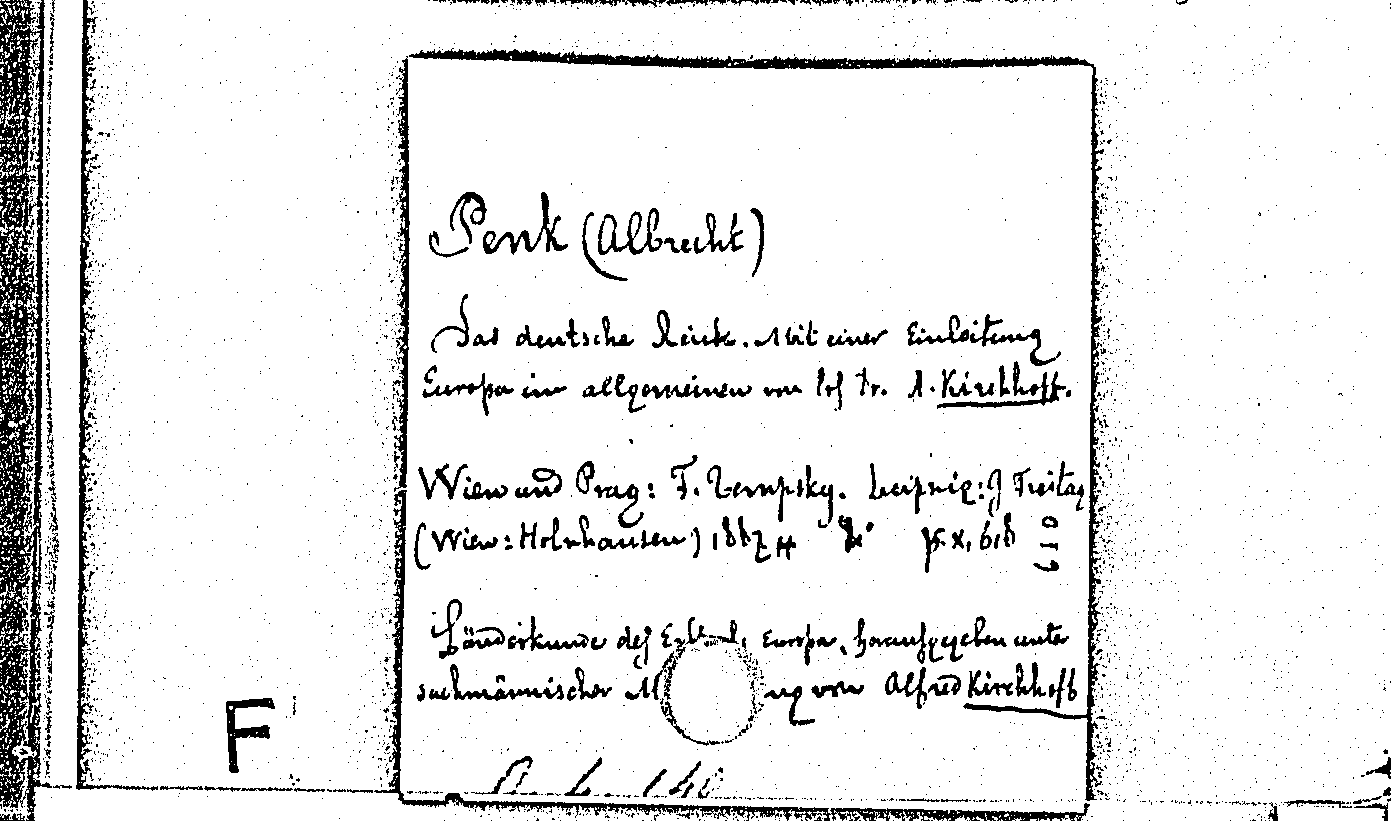 Penk (Albrecht)
Das deutsche Reich. Mit einer Einleitung
Europa im allgemeinen von Prof Dr. A. Kirchhoff.
Wien und Prag: F. Tempsky. Leipzig: G Freitag
(Wien: Holzhausen) 1887 4° p. X, 618
Länderkunde des Europa, herausgegeben unter
fachmännischer M ng von Alfred Kirchhoff
F